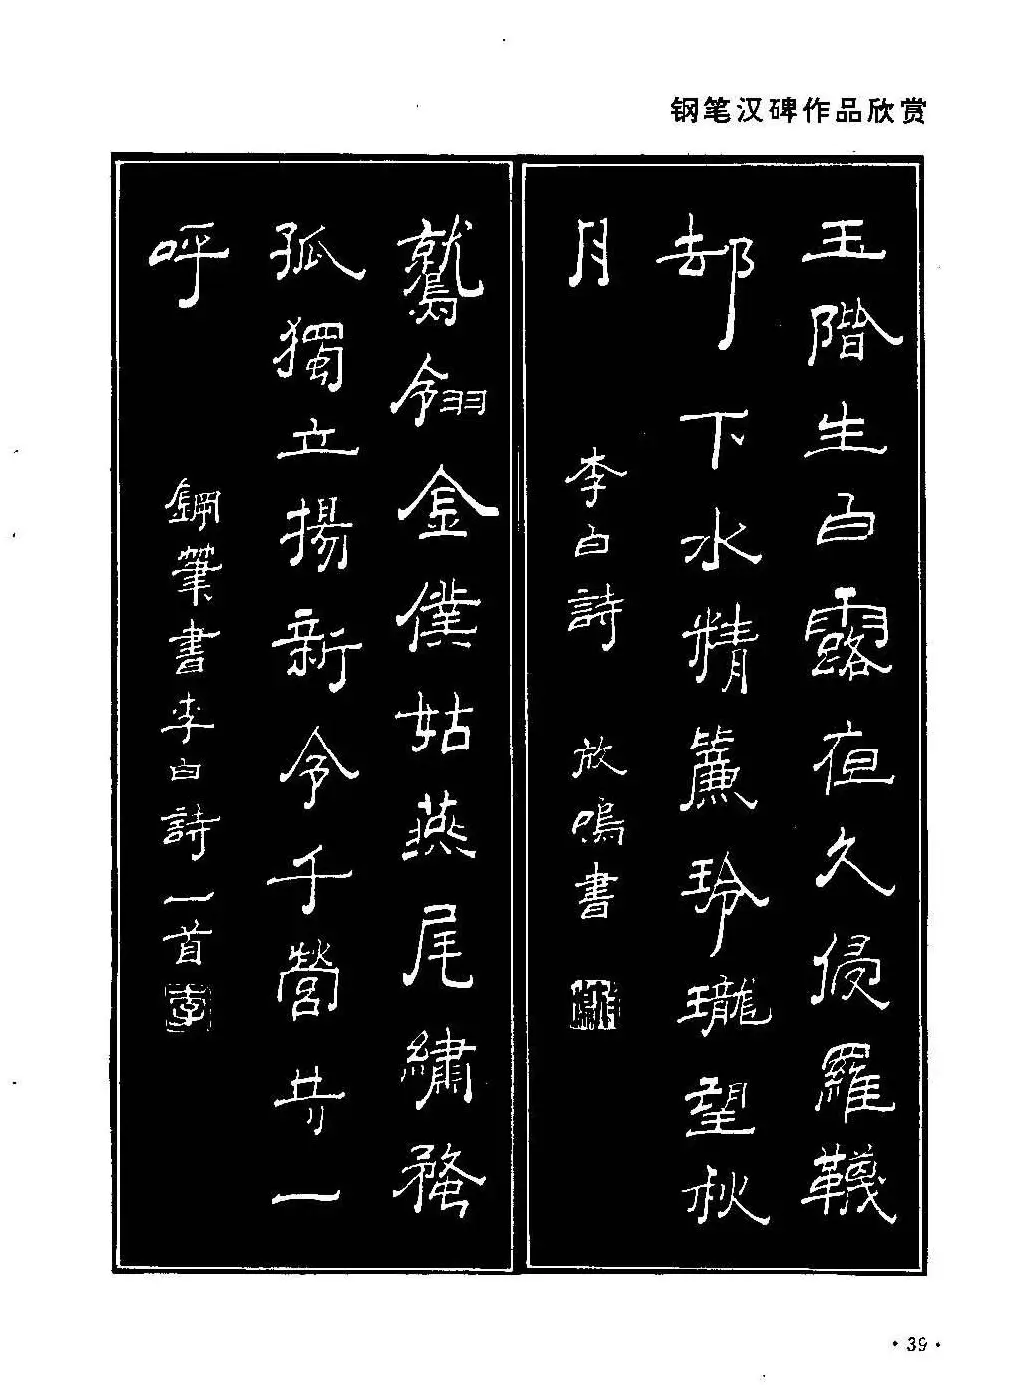 钢笔汉碑作品欣赏
玉階生白露夜久侵羅韈
却下水精簾玲瓏望秋
月 李白詩 放鳴書
鷲翎金僕姑燕尾繡蝥
孤獨立揚新令千營共一
呼 鋼筆書李白詩一首
·39·